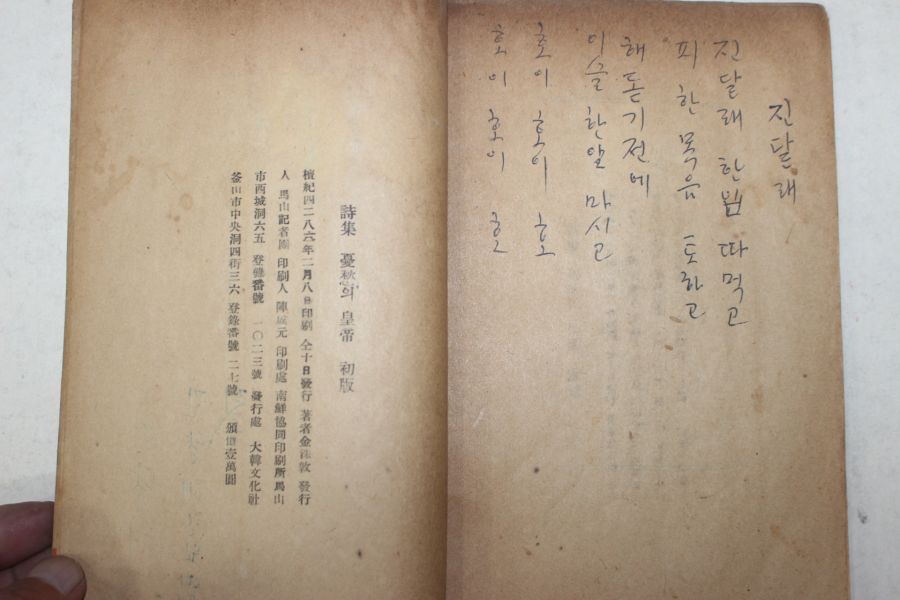 진달래
진달래 한닢 따먹고
피 한 목음 토하고
해돋기전에
이슬 한알 마시고
호이 호이 호
호이 호이 호
詩集 憂愁의 皇帝 初版
檀紀四二八六年二月八日印刷 仝十日發行 著者金洙敦 發行
人 馬山記者團 印刷人 陳 元 印刷處 南鮮協同印刷所馬山
市西城洞六五 登錄番號 一〇二三號 發行處 大韓文化社
釜山市中央洞四街三六 登錄番號 二七號 頒價壹萬圓